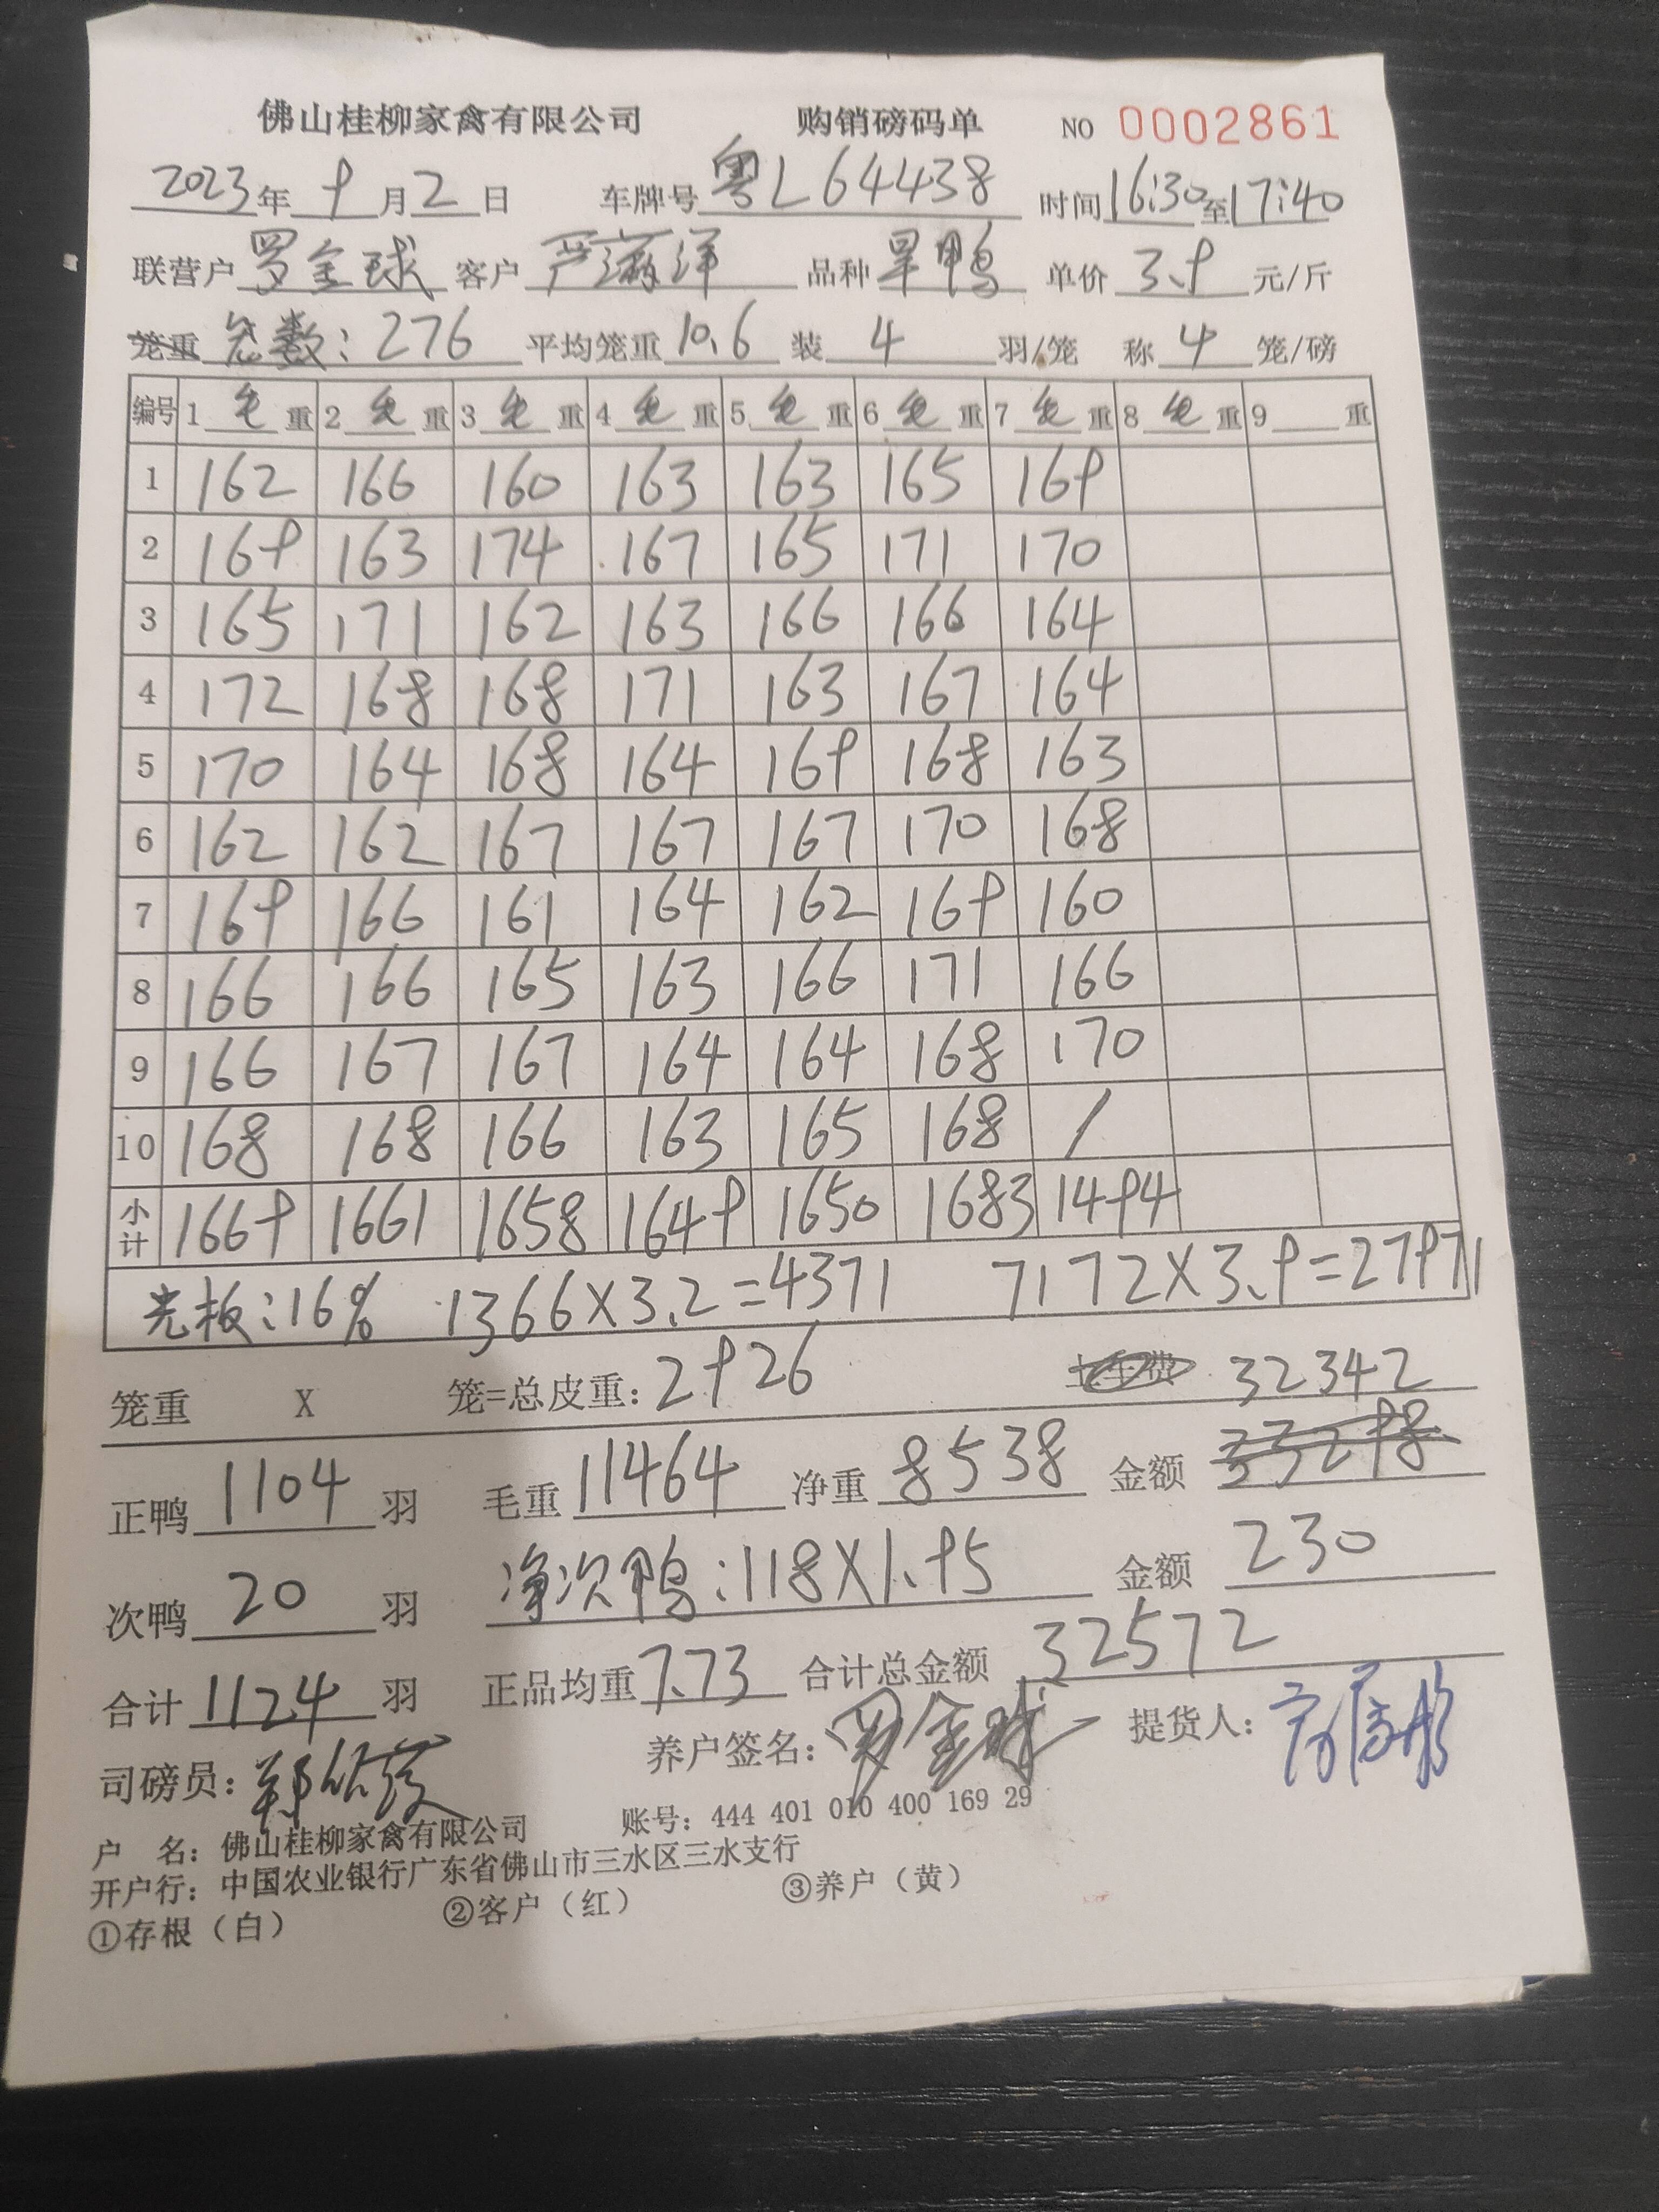 佛山桂柳家禽有限公司 购销磅码单 NO 0002861
2023年 9月2日 车牌号 粤L64438 时间16:30至17:40
联营户 罗金球 客户 严 洋 品种 旱鸭 单价 3.9 元/斤
笼重 总数:276 平均笼重10.6 装 4 羽/笼 称 4 笼/磅
编号 1 毛 重 2 毛 重 3 毛 重 4 毛 重 5 毛 重 6 毛 重 7 毛 重 8 毛 重 9 重
1 162 166 160 163 163 165 169
2 169 163 174 167 165 171 170
3 165 171 162 163 166 166 164
4 172 168 168 171 163 167 164
5 170 164 168 164 169 168 163
6 162 162 167 167 167 170 168
7 169 166 161 164 162 169 160
8 166 166 165 163 166 171 166
9 166 167 167 164 164 168 170
10 168 168 166 163 165 168 /
小计 1669 1661 1658 1649 1650 1683 1494
光板:16% 1366X3.2=4371 7172X3.9=27971
笼重 X 笼=总皮重:2926 上车费 32342
正鸭 1104 羽 毛重 11464 净重 8538 金额 33298
次鸭 20 羽 净次鸭:118X1.95 金额 230
合计 1124 羽 正品均重 7.73 合计总金额 32572
司磅员: 养户签名:罗金球 提货人:
户 名:佛山桂柳家禽有限公司 账号:444 401 010 400 169 29
开户行:中国农业银行广东省佛山市三水区三水支行
①存根(白) ②客户(红) ③养户(黄)